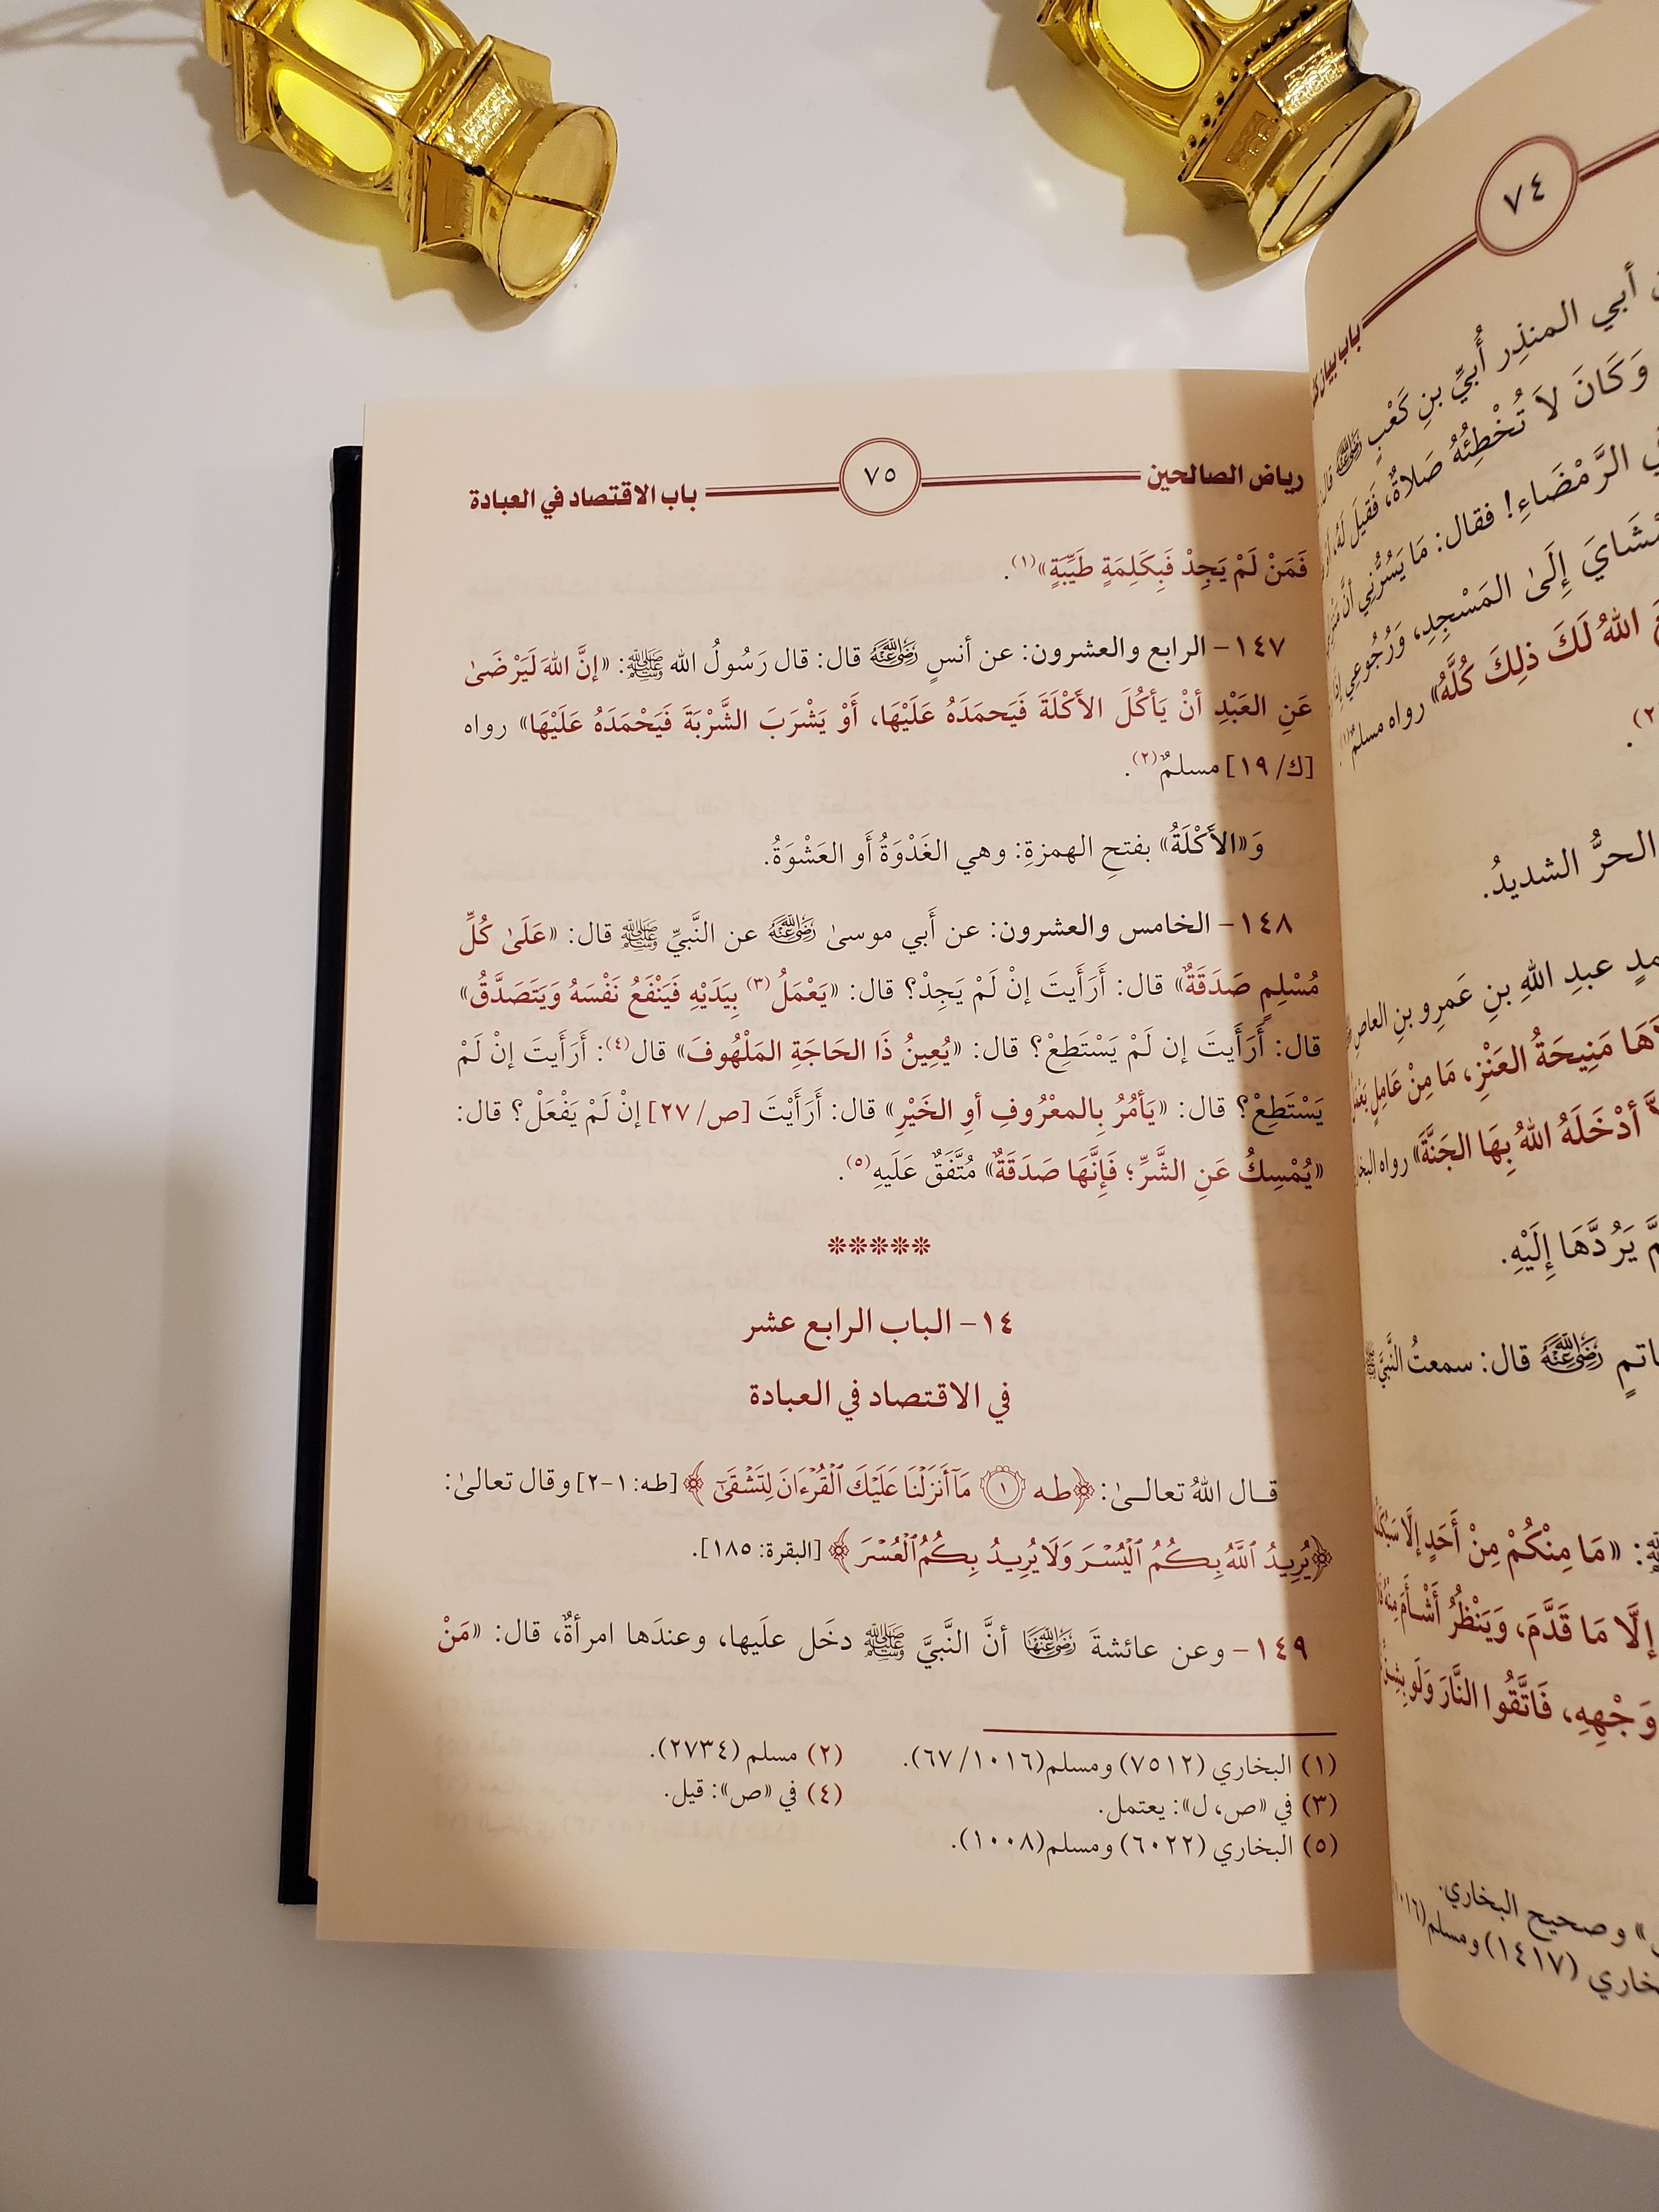 ٧٤
باب بيان
أبي المنذِر أُبيِّ بنِ كَعْبٍ ﵁ قال:
وَكَانَ لاَ تُخْطِئُهُ صَلاةٌ، فَقيلَ لَهُ،
الرَّمْضَاءِ! فقال: مَا يَسُرُّنِي أنَّ
إِلَىٰ المَسْجِدِ، وَرُجُوعِي
اللهُ لَكَ ذلِكَ كُلَّهُ» رواه مسلمٌ(١)
(٢).
الحرُّ الشديدُ.
عبدِ اللهِ بنِ عَمرِو بنِ العاصِ
مَنِيحَةُ العَنْزِ، مَا مِنْ عَامِلٍ
أدْخَلَهُ اللهُ بِهَا الجَنَّةَ» رواه
يَرُدَّهَا إِلَيْهِ.
﵁ قال: سمعتُ النَّبيَّ
«مَا مِنْكُمْ مِنْ أَحَدٍ إلَّا
إلَّا مَا قَدَّمَ، وَيَنْظُرُ أَشْأَمَ مِنْهُ
وَجْهِهِ، فَاتَّقُوا النَّارَ وَلَو
وصحيح البخاري.
(١٤١٧) ومسلم
رياض الصالحين
٧٥
باب الاقتصاد في العبادة
فَمَنْ لَمْ يَجِدْ فَبِكَلِمَةٍ طَيِّبَةٍ»(١).
١٤٧- الرابع والعشرون: عن أنسٍ ﵁ قال: قال رَسُولُ الله ﷺ: «إنَّ اللهَ لَيَرْضَىٰ
عَنِ العَبْدِ أنْ يَأكُلَ الأَكْلَةَ فَيَحمَدَهُ عَلَيْهَا، أَوْ يَشْرَبَ الشَّرْبَةَ فَيَحْمَدَهُ عَلَيْهَا» رواه
[ك/ ١٩] مسلمٌ(٢).
وَ«الأَكْلَةُ» بفتحِ الهمزةِ: وهي الغَدْوَةُ أَو العَشْوَةُ.
١٤٨- الخامس والعشرون: عن أَبي موسىٰ ﵁ عن النَّبيِّ ﷺ قال: «عَلَىٰ كُلِّ
مُسْلِمٍ صَدَقَةٌ» قال: أَرَأَيتَ إنْ لَمْ يَجِدْ؟ قال: «يَعْمَلُ(٣) بِيَدَيْهِ فَيَنْفَعُ نَفْسَهُ وَيَتَصَدَّقُ»
قال: أَرَأَيتَ إن لَمْ يَسْتَطِعْ؟ قال: «يُعِينُ ذَا الحَاجَةِ المَلْهُوفَ» قال(٤): أَرَأَيتَ إنْ لَمْ
يَسْتَطِعْ؟ قال: «يَأمُرُ بِالمعْرُوفِ أوِ الخَيْرِ» قال: أَرَأَيْتَ [ص/ ٢٧] إنْ لَمْ يَفْعَلْ؟ قال:
«يُمْسِكُ عَنِ الشَّرِّ؛ فَإِنَّهَا صَدَقَةٌ» مُتَّفَقٌ عَلَيهِ(٥).
*****
١٤- الباب الرابع عشر
في الاقتصاد في العبادة
قـال اللهُ تعالـىٰ: ﴿طه ١ مَآ أَنزَلْنَا عَلَيْكَ ٱلْقُرْءَانَ لِتَشْقَىٰٓ﴾ [طه: ١-٢] وقال تعالىٰ:
﴿يُرِيدُ ٱللَّهُ بِكُمُ ٱلْيُسْرَ وَلَا يُرِيدُ بِكُمُ ٱلْعُسْرَ﴾ [البقرة: ١٨٥].
١٤٩- وعن عائشةَ ﵂ أنَّ النَّبيَّ ﷺ دخَل علَيها، وعندَها امرأةٌ، قال: «مَنْ
(١) البخاري (٧٥١٢) ومسلم(١٠١٦/ ٦٧).
(٢) مسلم (٢٧٣٤).
(٣) في «ص، ل»: يعتمل.
(٤) في «ص»: قيل.
(٥) البخاري (٦٠٢٢) ومسلم(١٠٠٨).